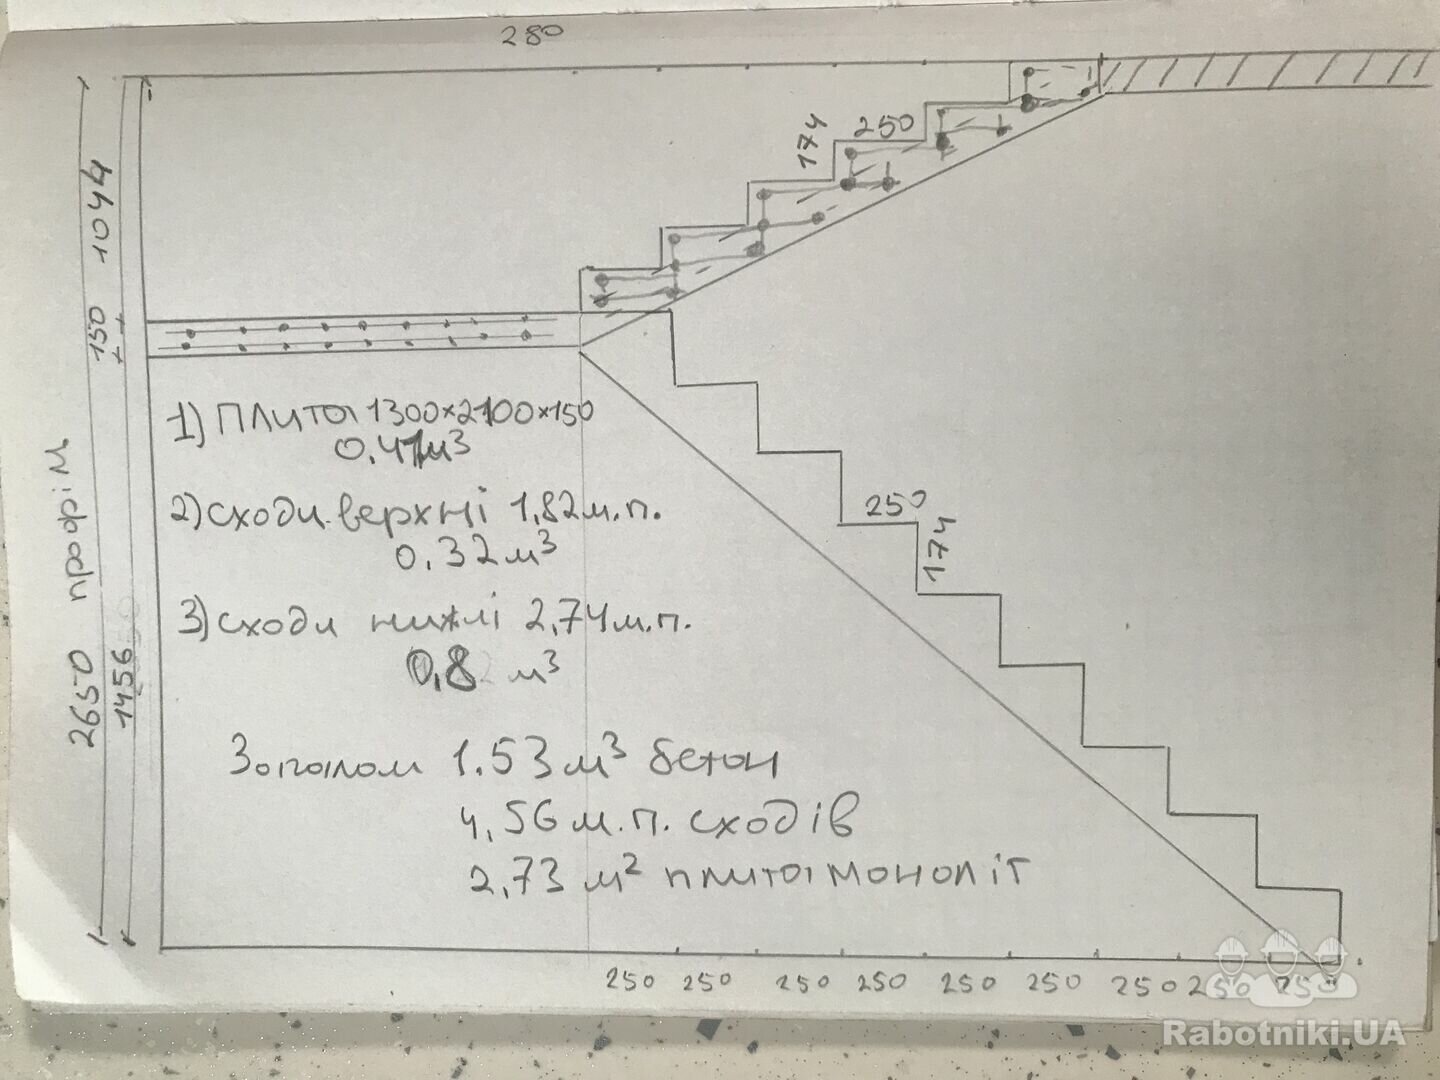 280
174
250
1044
150
1456
2650 профіл
1) Плита 1300×2100×150
0.41м³
2) сходи верхні 1,82 м.п.
0.32 м³
3) сходи нижні 2,74 м.п.
0,8 м³
Загалом 1.53 м³ бетон
4,56 м.п. сходів
2,73 м² плита моноліт
250
174
250 250 250 250 250 250 250 250 250
Rabotniki.UA